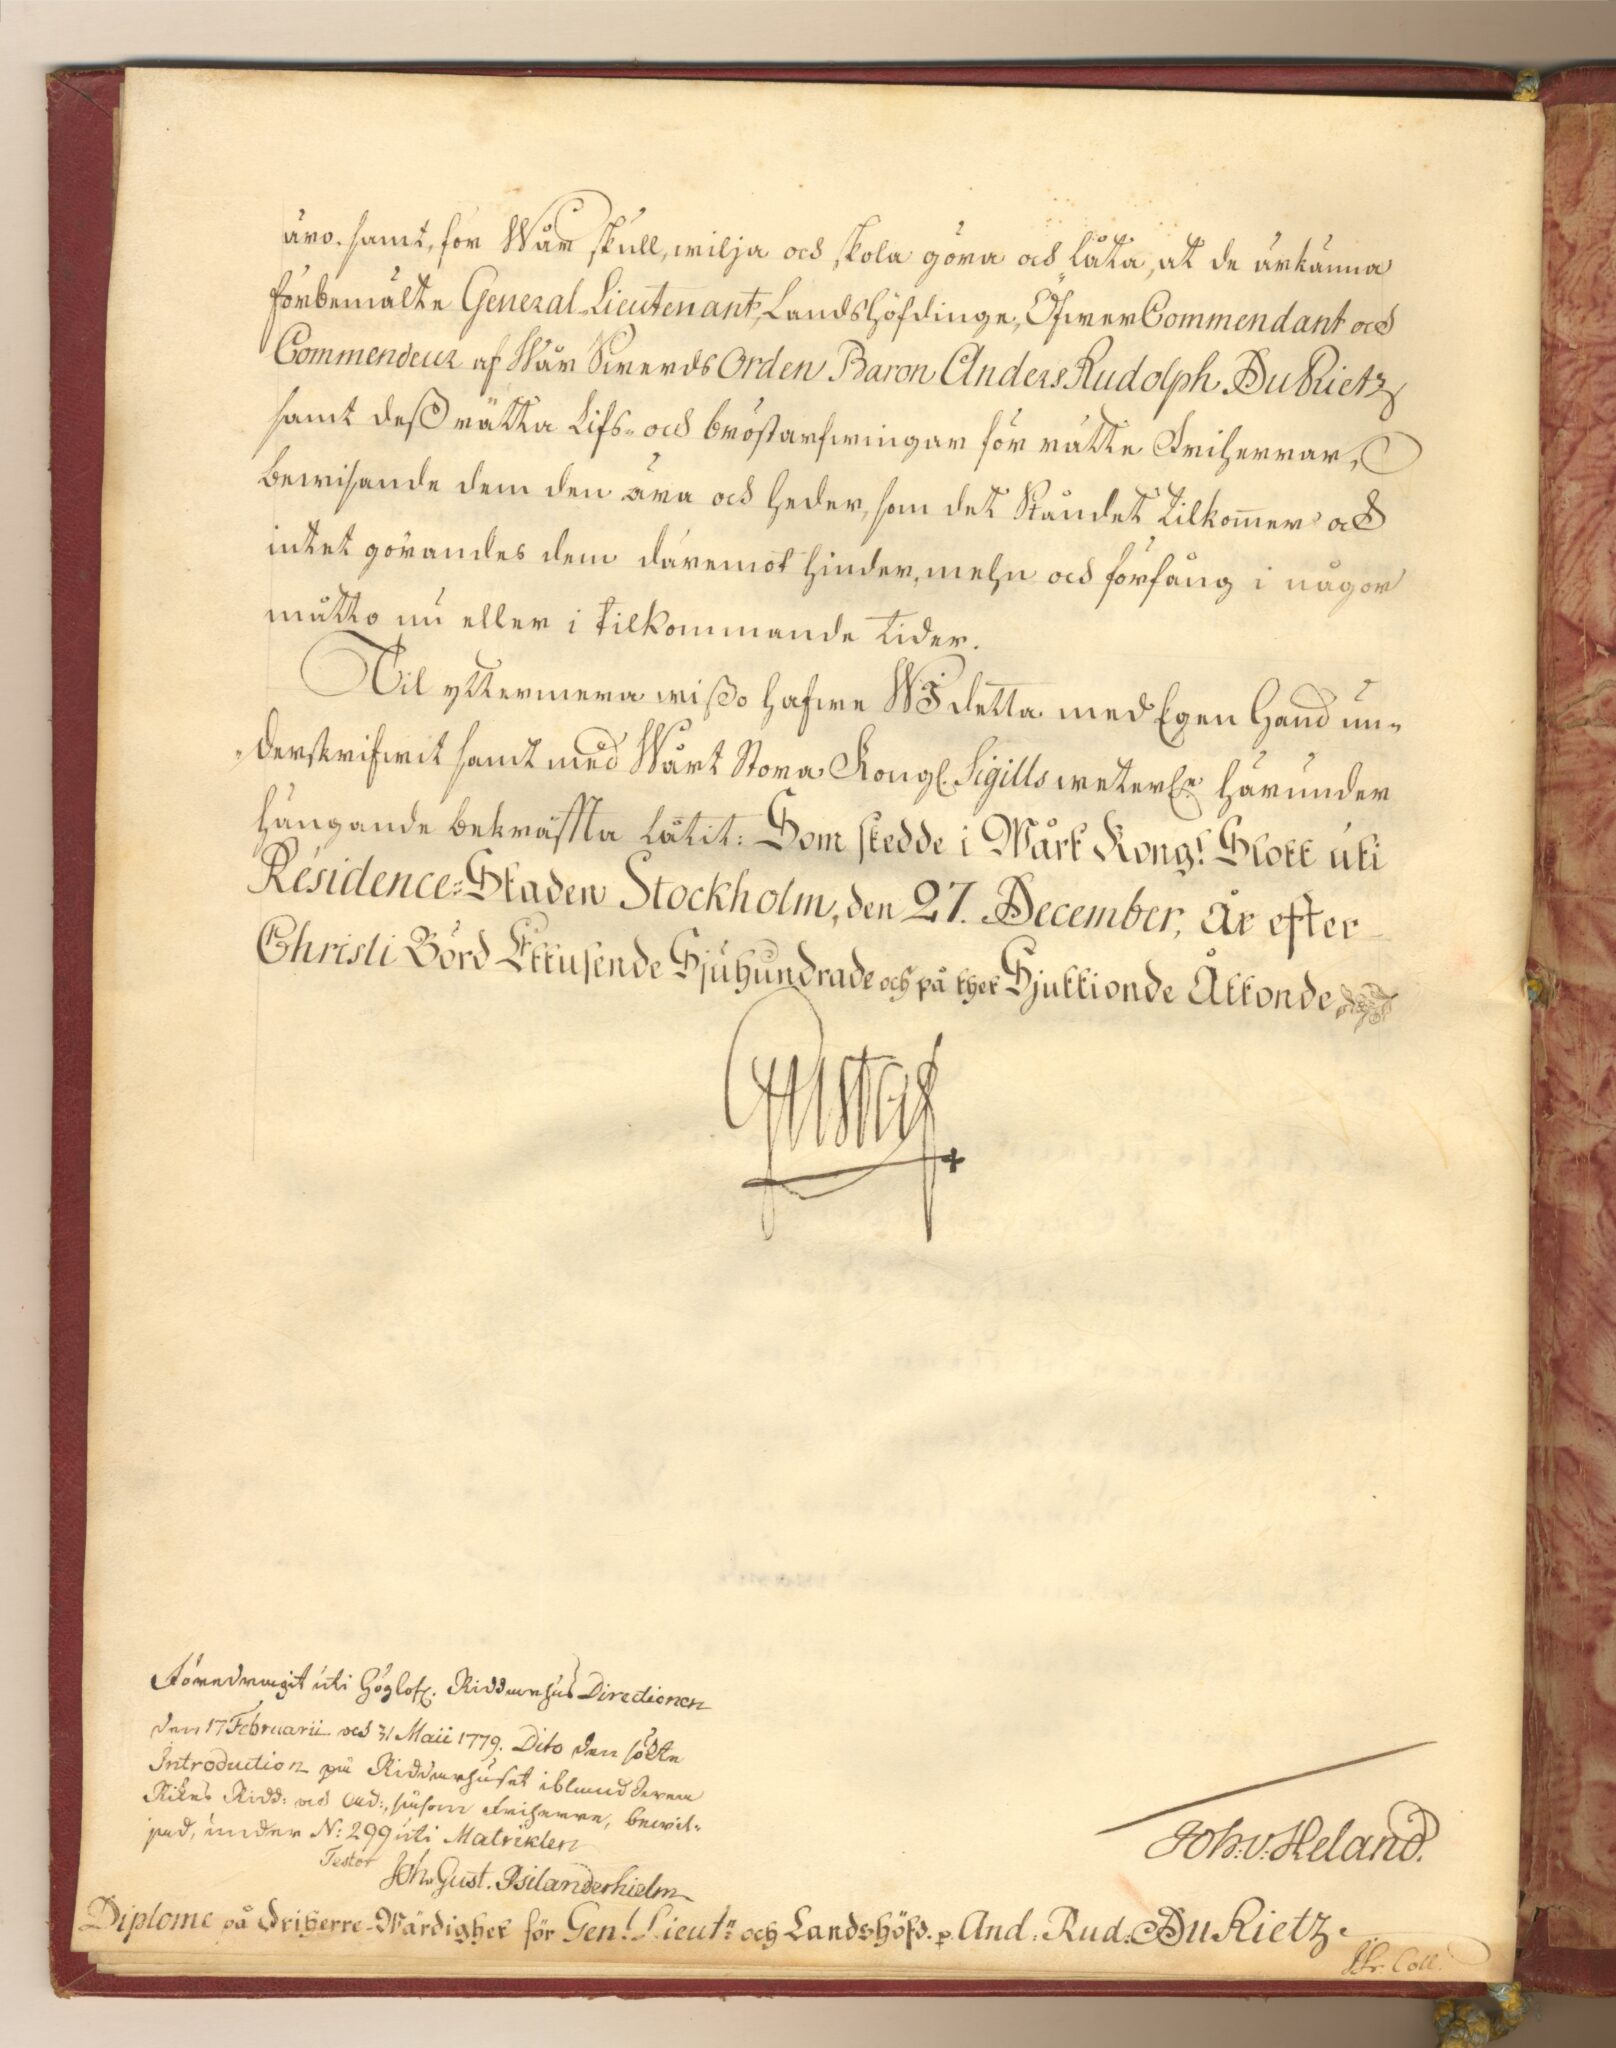 äro. samt, för Wår skull, wilja och skola göra och låta, at de ärkänna
förbemälte General-Lieutenant, Landshöfdinge, Öfwer Commendant och
Commendeur af Wår Swerds Orden Baron Anders Rudolph Du Rietz
samt deß rätta Lifs- och bröstarfwingar för rätte Friherrar,
bewisande dem den ära och heder, som det Ståndet tilkom̄er och
intet görandes dem däremot hinder, mehn och förfång i någor
måtto nu eller i tilkommande tider.
Til yttermera wißo hafwe Wi detta med Egen Hand un-
-derskrifwit samt med Wårt Stora Kongl. Sigills härunder
hängande bekräffta låtit: Som skedde i Wårt Kongl. Slott uti
Résidence-Staden Stockholm, den 27. December, År efter
Christi Börd Ettusende Sjuhundrade och på thet Sjuttionde Åttonde
Gustaf
Föredragit uti Höglofl. Riddarhus Directionen
den 17 Februarii och 31 Maii 1779. Dito den sökte
Introduction på Riddarhuset ibland
Rikets Ridd: och Ad:, såsom Friherre, bewil-
jad, under N: 299 uti Matriklen
Testor
Joh. Gust. Psilanderhielm
Joh. v. Heland.
Diplome på Friherre-Wärdighet för Genl. Lieutn: och Landshöfd. p. And. Rud. Du Rietz.
Coll.